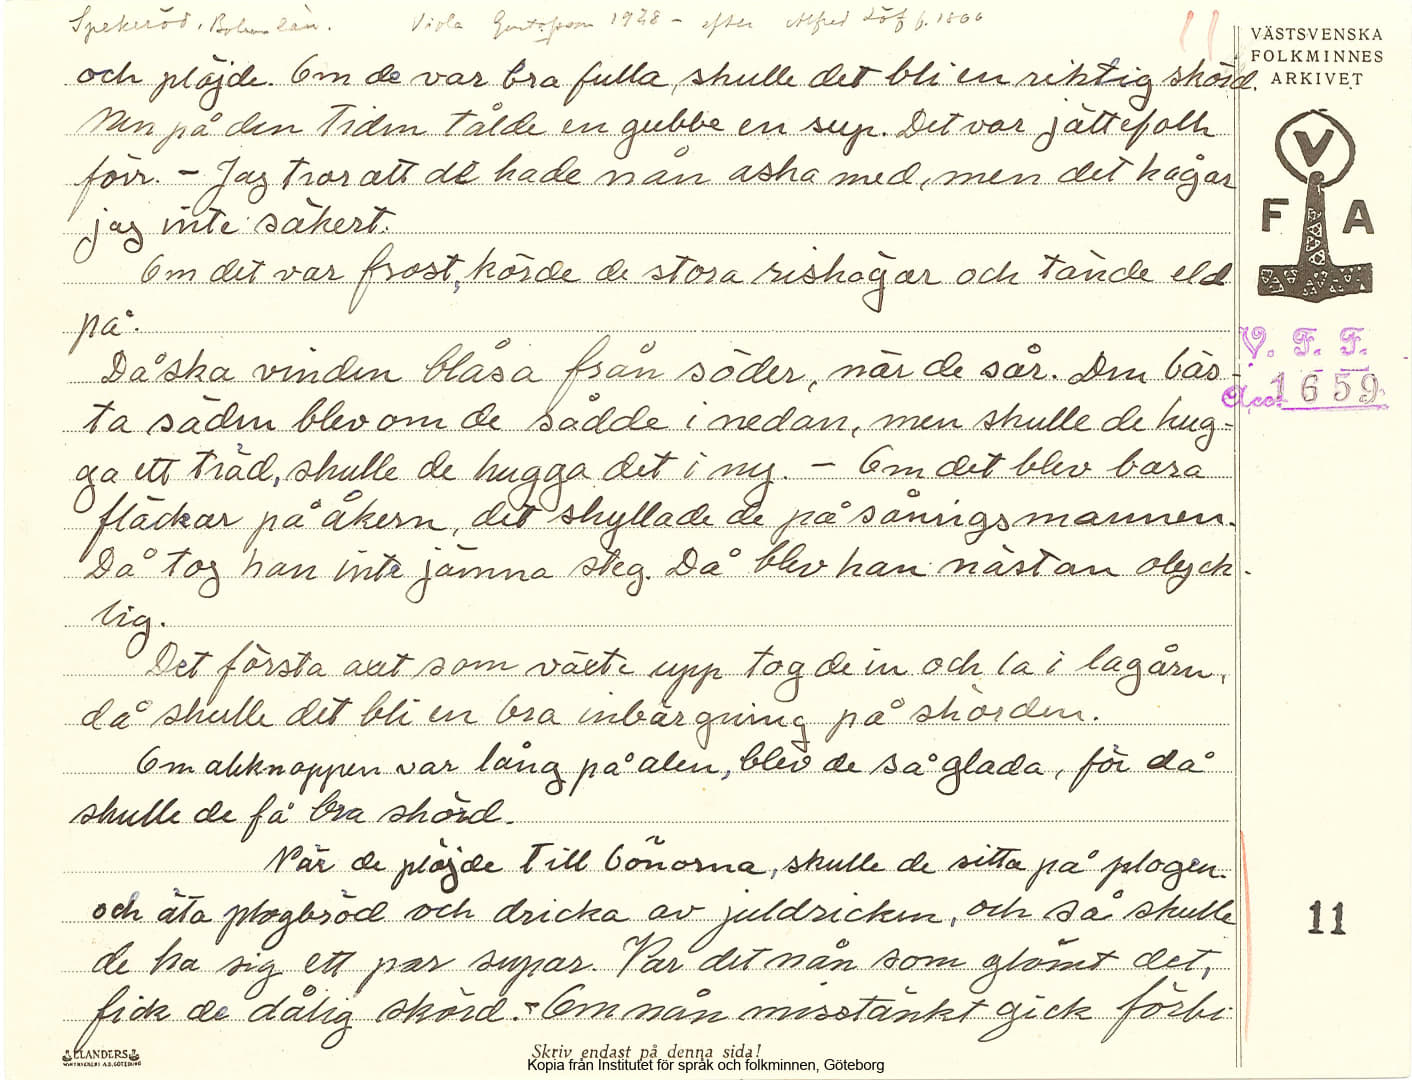 Spekeröd, Bohuslän. Viola Gustafsson 1928 – efter Alfred Löf f. 1866
11
VÄSTSVENSKA
FOLKMINNES
ARKIVET
V
F A
V. F. F.
Acc. 1659
och plöjde. Om de var bra fulla, skulle det bli en riktig skörd.
Men på den tiden tålde en gubbe en sup. Det var jättefolk
förr. – Jag tror att de hade nån aska med, men det hågar
jag inte säkert.
Om det var frost, körde de stora rishögar och tände eld
på.
Då ska vinden blåsa från söder, när de sår. Den bäs-
ta säden blev om de sådde i nedan, men skulle de hug-
ga ett träd, skulle de hugga det i ny. – Om det blev bara
fläckar på åkern, det skyllade de på såningsmannen.
Då tog han inte jämna steg. Då blev han nästan olyck-
lig.
Det första axt som växte upp tog de in och la i lagårn,
då skulle det bli en bra inbärgning på skörden.
Om aleknoppen var lång på alen, blev de så glada, för då
skulle de få bra skörd.
När de plöjde till bönorna, skulle de sitta på plogen
och äta plogbröd och dricka av juldricken, och så skulle
de ha sig ett par supar. Var det nån som glömt det,
fick de dålig skörd. – Om nån misstänkt gick förbi
11
ELANDERS
Skriv endast på denna sida!
Kopia från Institutet för språk och folkminnen, Göteborg